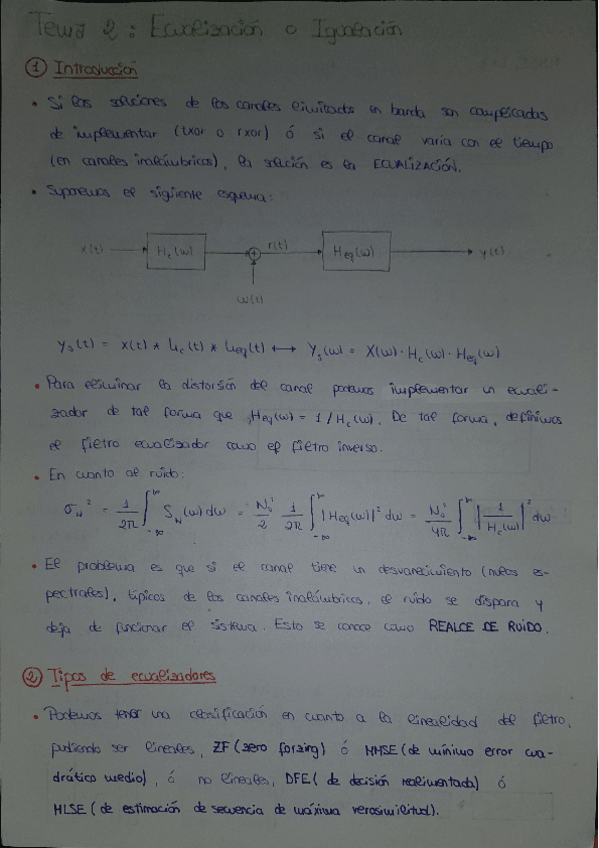 Tema 2: Ecualización o Igualación
① Introducción
• Si las soluciones de los canales limitados en banda son complicadas
de implementar (txor o rxor) ó si el canal varía con el tiempo
(en canales inalámbricos), la solución es la ECUALIZACIÓN.
• Suponemos el siguiente esquema:
x(t) → H_c(ω) → + r(t) → H_eq(ω) → y(t)
ω(t)
y_s(t) = x(t) * h_c(t) * h_eq(t) ⟷ Y_s(ω) = X(ω) · H_c(ω) · H_eq(ω)
• Para eliminar la distorsión del canal podemos implementar un ecuali-
zador de tal forma que H_eq(ω) = 1 / H_c(ω). De tal forma, definimos
el filtro ecualizador como el filtro inverso.
• En cuanto al ruido:
σ_N² = 1/2π ∫_{-∞}^{∞} S_N(ω) dω = N_0'/2 1/2π ∫_{-∞}^{∞} |H_eq(ω)|² dω = N_0'/4π ∫_{-∞}^{∞} |1/H_c(ω)|² dω
• El problema es que si el canal tiene un desvanecimiento (nulos es-
pectrales), típicos de los canales inalámbricos, el ruido se dispara y
deja de funcionar el sistema. Esto se conoce como REALCE DE RUIDO.
② Tipos de ecualizadores
• Podemos tener una clasificación en cuanto a la linealidad del filtro,
pudiendo ser lineales, ZF (zero forzing) ó MMSE (de mínimo error cua-
drático medio), ó no lineales, DFE (de decisión realimentada) ó
MLSE (de estimación de secuencia de máxima verosimilitud).